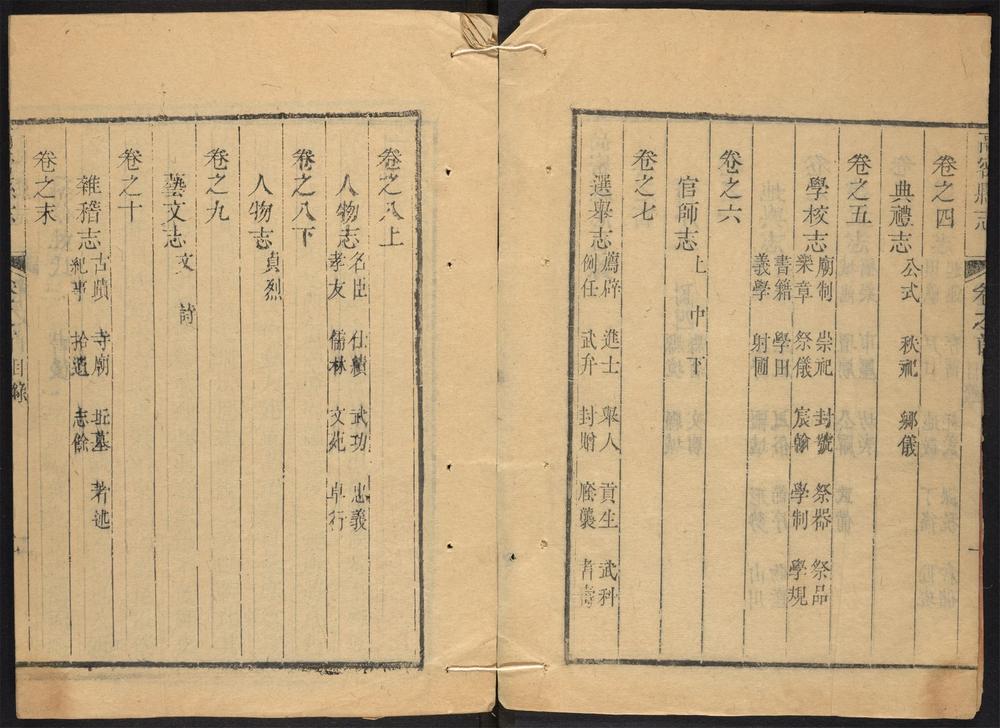 高密縣志 卷之首
卷之四
典禮志 公式 秋祀 鄉儀
卷之五
學校志 廟制 崇祀 封號 祭器 祭品
樂章 祭儀 宸翰 學制 學規
書籍 學田
義學 射圃
卷之六
官師志 上 中 下
卷之七
選舉志 薦辟 進士 舉人 貢生 武科
例任 武弁 封贈 廕襲 耆壽
卷之八上
人物志 名臣 仕績 武功 忠義
孝友 儒林 文苑 卓行
卷之八下
人物志 貞烈
卷之九
藝文志 文 詩
卷之十
雜稽志 古蹟 寺廟 坵墓 著述
紀事 拾遺 志餘
卷之末
目錄